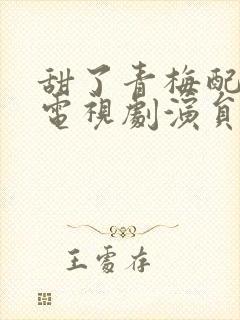 甜了青梅配
電視劇演員
王雪存